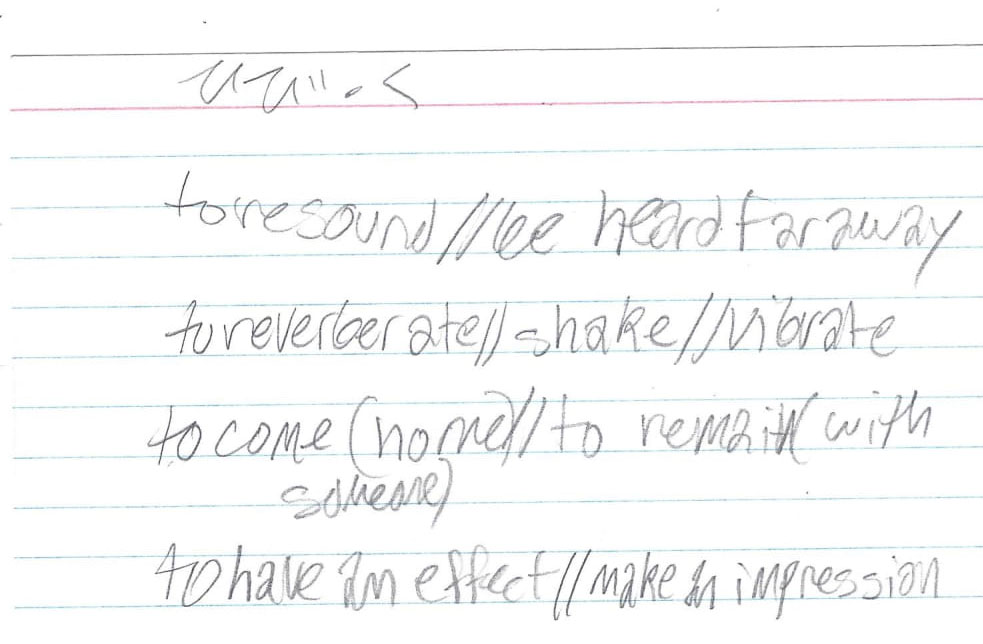 ひび.く
to resound//be heard far away
to reverberate//shake//vibrate
to come (home)//to remain(with
someone)
to have an effect//make an impression